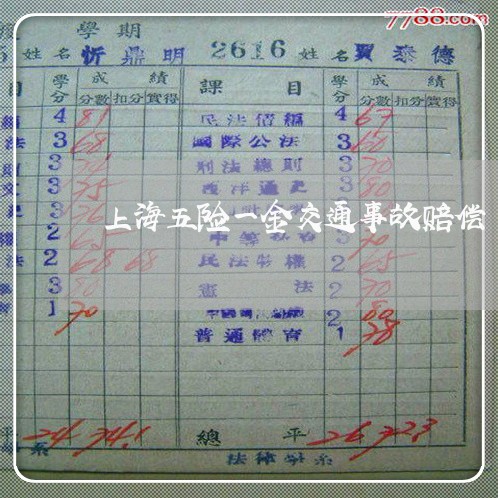 7788.com
學期
姓名 忻鼎明 2616 姓名 賈泰德
目 學分 成績 課目 學分 成績
分數 扣分 實得 分數 扣分 實得
4 81 民法債編 4 67
法 3 68 國際公法 3 60
3 刑法總則 3 70
3 75 西洋通史 3 80
3 76 3
上海五险一金交通事故赔偿
2 65 70
法 2 68 68 民法物權 2 65
3 80 憲法 2 70
1 70 2 80
普通體育 1 78
平 24 74.1 總平 26 72.3
系 法律學系